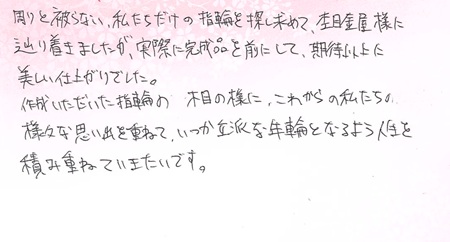 周りと被らない、私たちだけの指輪を探し求めて、杢目金屋様に
辿り着きましたが、実際に完成品を前にして、期待以上に
美しい仕上がりでした。
作成いただいた指輪の木目の様に、これからの私たちの
様々な思い出を重ねて、いつか立派な年輪となるよう人生を
積み重ねていきたいです。